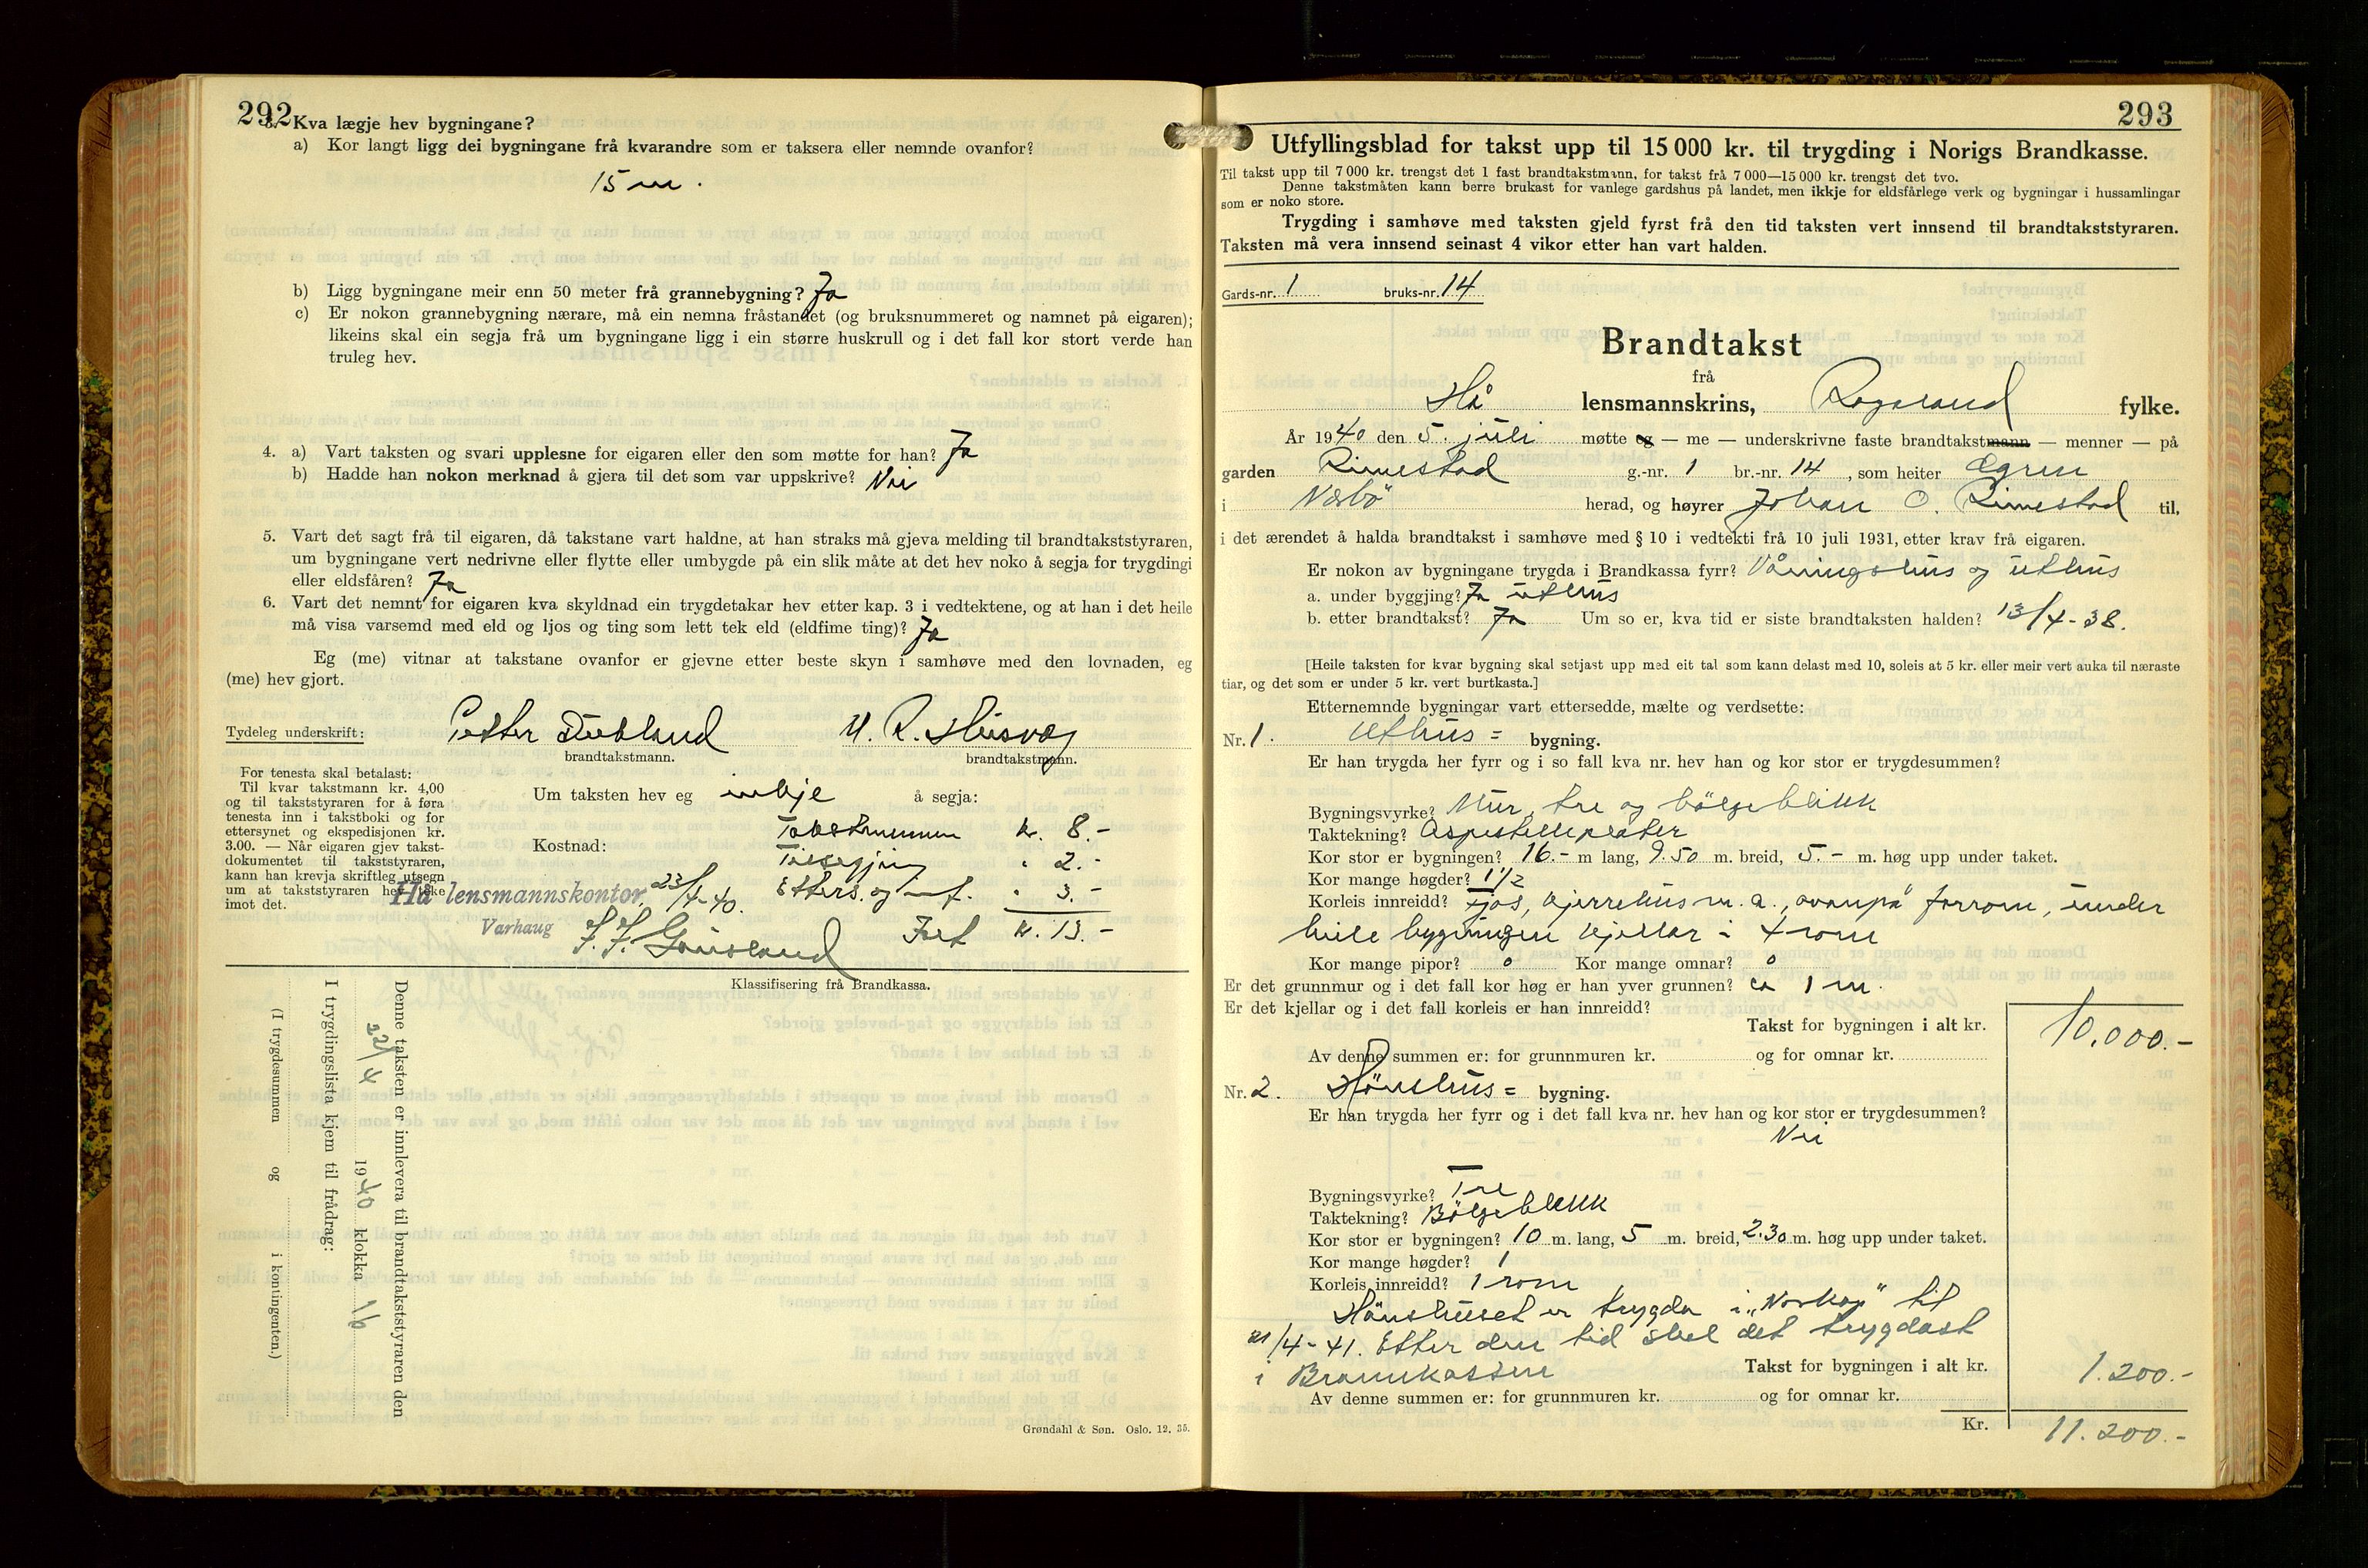 292
3. Kva lægje hev bygningane?
a) Kor langt ligg dei bygningane frå kvarandre som er taksera eller nemnde ovanfor?
15 m.
b) Ligg bygningane meir enn 50 meter frå grannebygning? Ja
c) Er nokon grannebygning nærare, må ein nemna fråstandet (og bruksnummeret og namnet på eigaren);
likeins skal ein segja frå um bygningane ligg i ein større huskrull og i det fall kor stort verde han
truleg hev.
4. a) Vart taksten og svari upplesne for eigaren eller den som møtte for han? Ja
b) Hadde han nokon merknad å gjera til det som var uppskrive? Nei
5. Vart det sagt frå til eigaren, då takstane vart haldne, at han straks må gjeva melding til brandtakststyraren,
um bygningane vert nedrivne eller flytte eller umbygde på ein slik måte at det hev noko å segja for trygdingi
eller eldsfåren? Ja
6. Vart det nemnt for eigaren kva skyldnad ein trygdetakar hev etter kap. 3 i vedtektene, og at han i det heile
må visa varsemd med eld og ljos og ting som lett tek eld (eldfime ting)? Ja
Eg (me) vitnar at takstane ovanfor er gjevne etter beste skyn i samhøve med den lovnaden, eg
(me) hev gjort.
Tydeleg underskrift: Petter M. R. Husvæg
brandtakstmann. brandtakstmann.
For tenesta skal betalast:
Til kvar takstmann kr. 4,00
og til takststyraren for å føra
tenesta inn i takstboki og for
ettersynet og ekspedisjonen kr.
3.00. — Når eigaren gjev takst-
dokumentet til takststyraren,
kann han krevja skriftleg utsegn
um at takststyraren hev teke
imot det.
Um taksten hev eg inkje å segja:
Kostnad:
Takstmennene kr. 8.-
Tilsegjing " 2.-
Etters. og innf. " 3.-
Hå lensmannskontor, 23/4-40.
Varhaug Ialt kr. 13.-
Klassifisering frå Brandkassa.
Denne taksten er innlevera til brandtakststyraren den
22/4 1940 klokka 16
I trygdingslista kjem til frådrag:
(I trygdesummen og i kontingenten.)
Grøndahl & Søn. Oslo. 12. 35.
293
Utfyllingsblad for takst upp til 15 000 kr. til trygding i Norigs Brandkasse.
Til takst upp til 7 000 kr. trengst det 1 fast brandtakstmann, for takst frå 7 000—15 000 kr. trengst det tvo.
Denne takstmåten kann berre brukast for vanlege gardshus på landet, men ikkje for eldsfårlege verk og bygningar i hussamlingar
som er noko store.
Trygding i samhøve med taksten gjeld fyrst frå den tid taksten vert innsend til brandtakststyraren.
Taksten må vera innsend seinast 4 vikor etter han vart halden.
Gards-nr. 1 bruks-nr. 14
Brandtakst
frå
Hå lensmannskrins, Rogaland fylke.
År 1940 den 5. juli møtte eg — me — underskrivne faste brandtakstmann — menner — på
garden Rimestad g.-nr. 1 br.-nr. 14, som heiter Øgren
i Nærbø herad, og høyrer Johan O. Rimestad til,
i det ærendet å halda brandtakst i samhøve med § 10 i vedtekti frå 10 juli 1931, etter krav frå eigaren.
Er nokon av bygningane trygda i Brandkassa fyrr? Våningshus og uthus
a. under byggjing? Ja uthus
b. etter brandtakst? Ja Um so er, kva tid er siste brandtaksten halden? 13/4-38.
[Heile taksten for kvar bygning skal setjast upp med eit tal som kann delast med 10, soleis at 5 kr. eller meir vert auka til næraste
tiar, og det som er under 5 kr. vert burtkasta.]
Etternemnde bygningar vart ettersedde, mælte og verdsette:
Nr. 1. Uthus= bygning.
Er han trygda her fyrr og i so fall kva nr. hev han og kor stor er trygdesummen?
Bygningsvyrke? Mur, tre og bölgeblikk
Taktekning? Aspestelleplater
Kor stor er bygningen? 16.- m lang, 9.50 m. breid, 5.- m. høg upp under taket.
Kor mange høgder? 1 1/2
Korleis innreidd? Fjos, kjerrehus m. a., ovanpå forrom, under
heile bygningen kjellar i 4 rom
Kor mange pipor? 0 Kor mange omnar? 0
Er det grunnmur og i det fall kor høg er han yver grunnen? ca 1 m.
Er det kjellar og i det fall korleis er han innreidd?
Takst for bygningen i alt kr. 10.000.-
Av denne summen er: for grunnmuren kr. og for omnar kr.
Nr. 2. Hönsehus= bygning.
Er han trygda her fyrr og i det fall kva nr. hev han og kor stor er trygdesummen?
Nei
Bygningsvyrke? Tre
Taktekning? Bölgeblikk
Kor stor er bygningen? 10 m. lang, 5 m. breid, 2.30 m. høg upp under taket.
Kor mange høgder? 1
Korleis innreidd? 1 rom
Hönsehuset er trygda i "Norkap" til
21/4-41. Etter den tid skal det trygdast
i Brannkassen Takst for bygningen i alt kr. 1.200.-
Av denne summen er: for grunnmuren kr. og for omnar kr.
Kr. 11.200.-